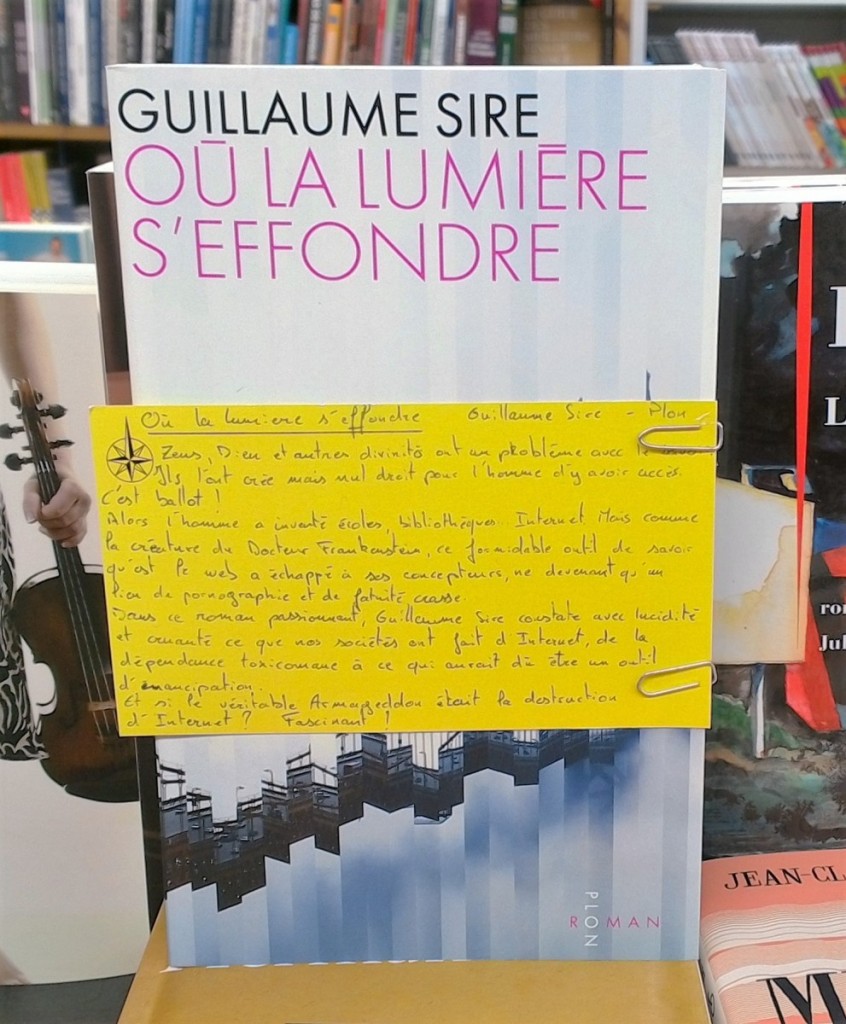 GUILLAUME SIRE
OŪ LA LUMIĒRE
S'EFFONDRE
Où la lumiere s'effondre Guillaume Sire - Plon
Zeus, Dieu et autres divinités ont un problème avec
Ils l'ont crée mais nul droit pour l'homme d'y avoir accès.
C'est ballot !
Alors l'homme a inventé écoles, bibliothèques... Internet. Mais comme
la créature du Docteur Frankenstein, ce formidable outil de savoir
qu'est le web a échappé à ses concepteurs, ne devenant qu'un
lieu de pornographie et de fatuité crasse.
Dans ce roman passionnant, Guillaume Sire constate avec lucidité
et cruauté ce que nos sociétés ont fait d'Internet, de la
dépendance toxicomane à ce qui aurait dû être un outil
d'émancipation.
Et si le véritable Armageddon était la destruction
d'Internet ? Fascinant !
PLON
ROMAN
L
roi
Jul
JEAN-CL
M